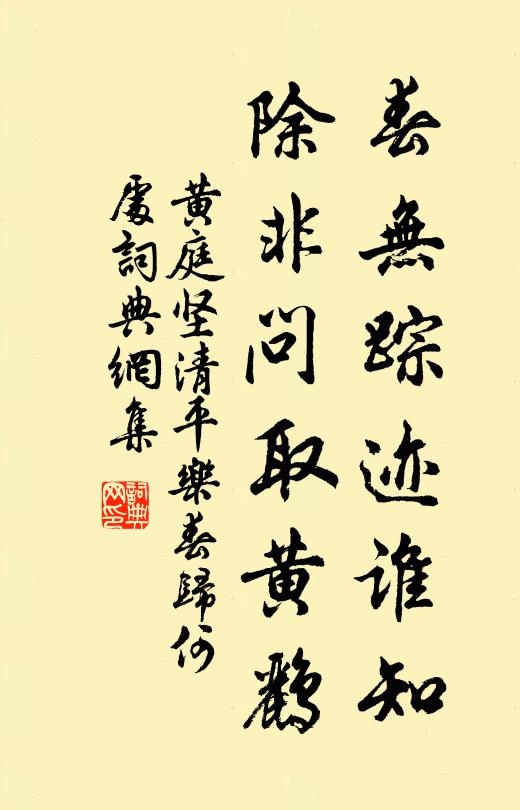 春無踪迹誰知
除非問取黄鸝
黄庭坚清平樂春歸何
處詞典網集
詞典
网印